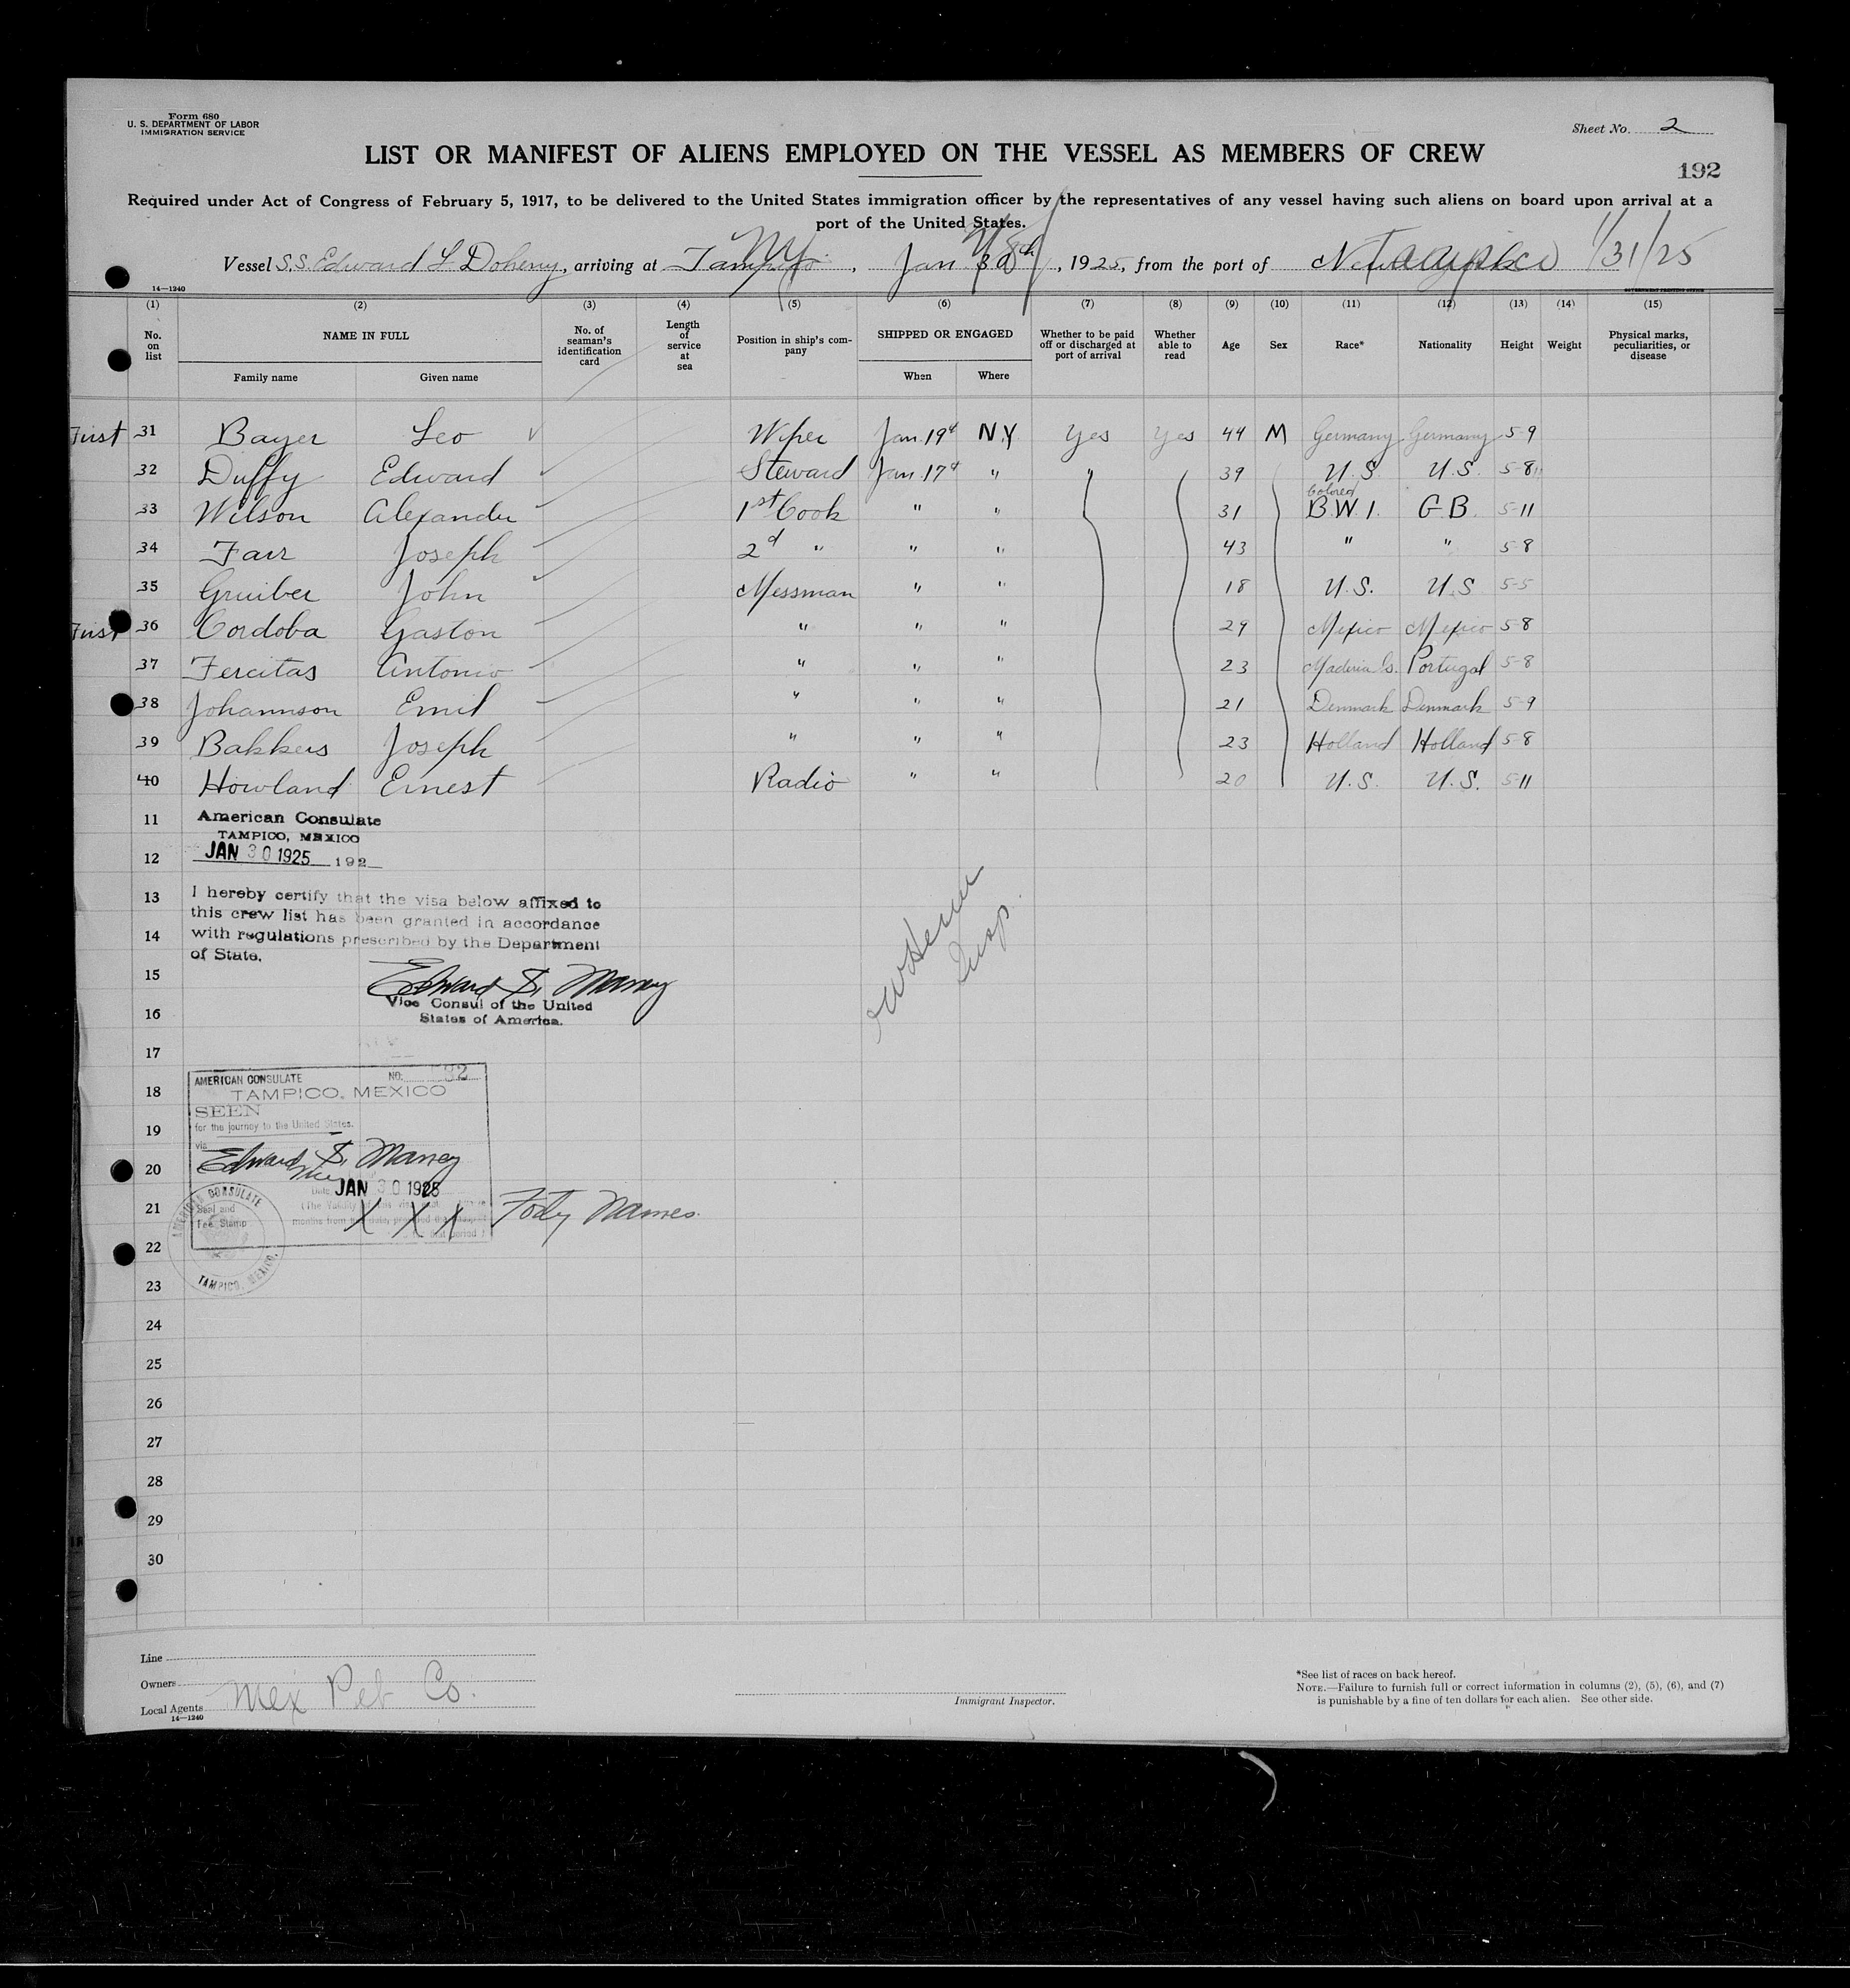 Form 680
U. S. DEPARTMENT OF LABOR
IMMIGRATION SERVICE
Sheet No. 2
LIST OR MANIFEST OF ALIENS EMPLOYED ON THE VESSEL AS MEMBERS OF CREW
192
Required under Act of Congress of February 5, 1917, to be delivered to the United States immigration officer by the representatives of any vessel having such aliens on board upon arrival at a
port of the United States.
Vessel S.S. Edward L Doheny, arriving at Tampico NY, Jan 30, 1925, from the port of Tampico 1/31/25
14—1240
(1) (2) (3) (4) (5) (6) (7) (8) (9) (10) (11) (12) (13) (14) (15)
No. on list NAME IN FULL No. of seaman's identification card Length of service at sea Position in ship's company SHIPPED OR ENGAGED Whether to be paid off or discharged at port of arrival Whether able to read Age Sex Race* Nationality Height Weight Physical marks, peculiarities, or disease
Family name Given name When Where
First 31 Bayer Leo Wiper Jan 19th N.Y Yes Yes 44 M Germany Germany 5-9
32 Duffy Edward Steward Jan 17th " " 39 U.S. U.S. 5-8
Colored
33 Wilson Alexander 1st Cook " " 31 B.W.I. G.B. 5-11
34 Farr Joseph 2d " " " 43 " " 5-8
35 Gruiber John Messman " " 18 U.S. U.S 5-5
First 36 Cordoba Gaston " " " 29 Mexico Mexico 5-8
37 Fercitas Antonio " " " 23 Maderia Is. Portugal 5-8
38 Johannson Emil " " " 21 Denmark Denmark 5-9
39 Bakkers Joseph " " " 23 Holland Holland 5-8
40 Howland Ernest Radio " " 20 U.S. U.S. 5-11
11 American Consulate
TAMPICO, MEXICO
12 JAN 30 1925 192
13 I hereby certify that the visa below affixed to
this crew list has been granted in accordance
14 with regulations prescribed by the Department
of State.
15 Edward S. Maney
Vice Consul of the United
16 States of America.
Insp.
17
AMERICAN CONSULATE NO. 32
18 TAMPICO, MEXICO
SEEN
19 for the journey to the United States.
via
20 Edward S. Maney
Date JAN 30 1925
21 Seal and
Fee Stamp
X X X Forty Names
22
AMERICAN CONSULATE
TAMPICO, MEXICO.
23
24
25
26
27
28
29
30
Line
Owners
Local Agents Mex Pet Co.
14—1240
Immigrant Inspector.
*See list of races on back hereof.
NOTE.—Failure to furnish full or correct information in columns (2), (5), (6), and (7)
is punishable by a fine of ten dollars for each alien. See other side.